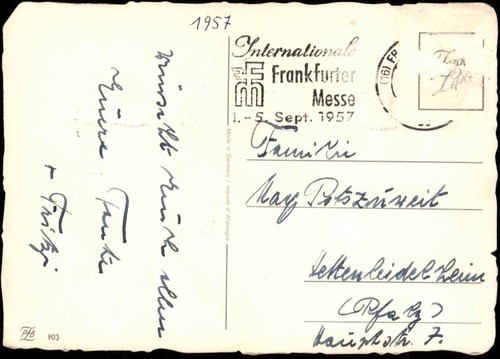 1957
wünscht Euch allen
Eure Tante
+ Fritzi
Internationale
Frankfurter
Messe
1.-5. Sept. 1957
(16) FR
Familie
Max Potszuweit
Hettenleidelheim
(Pfalz)
Hauptstr. 7.
Made in Germany / Imprimé d'Allemagne
PfB
903